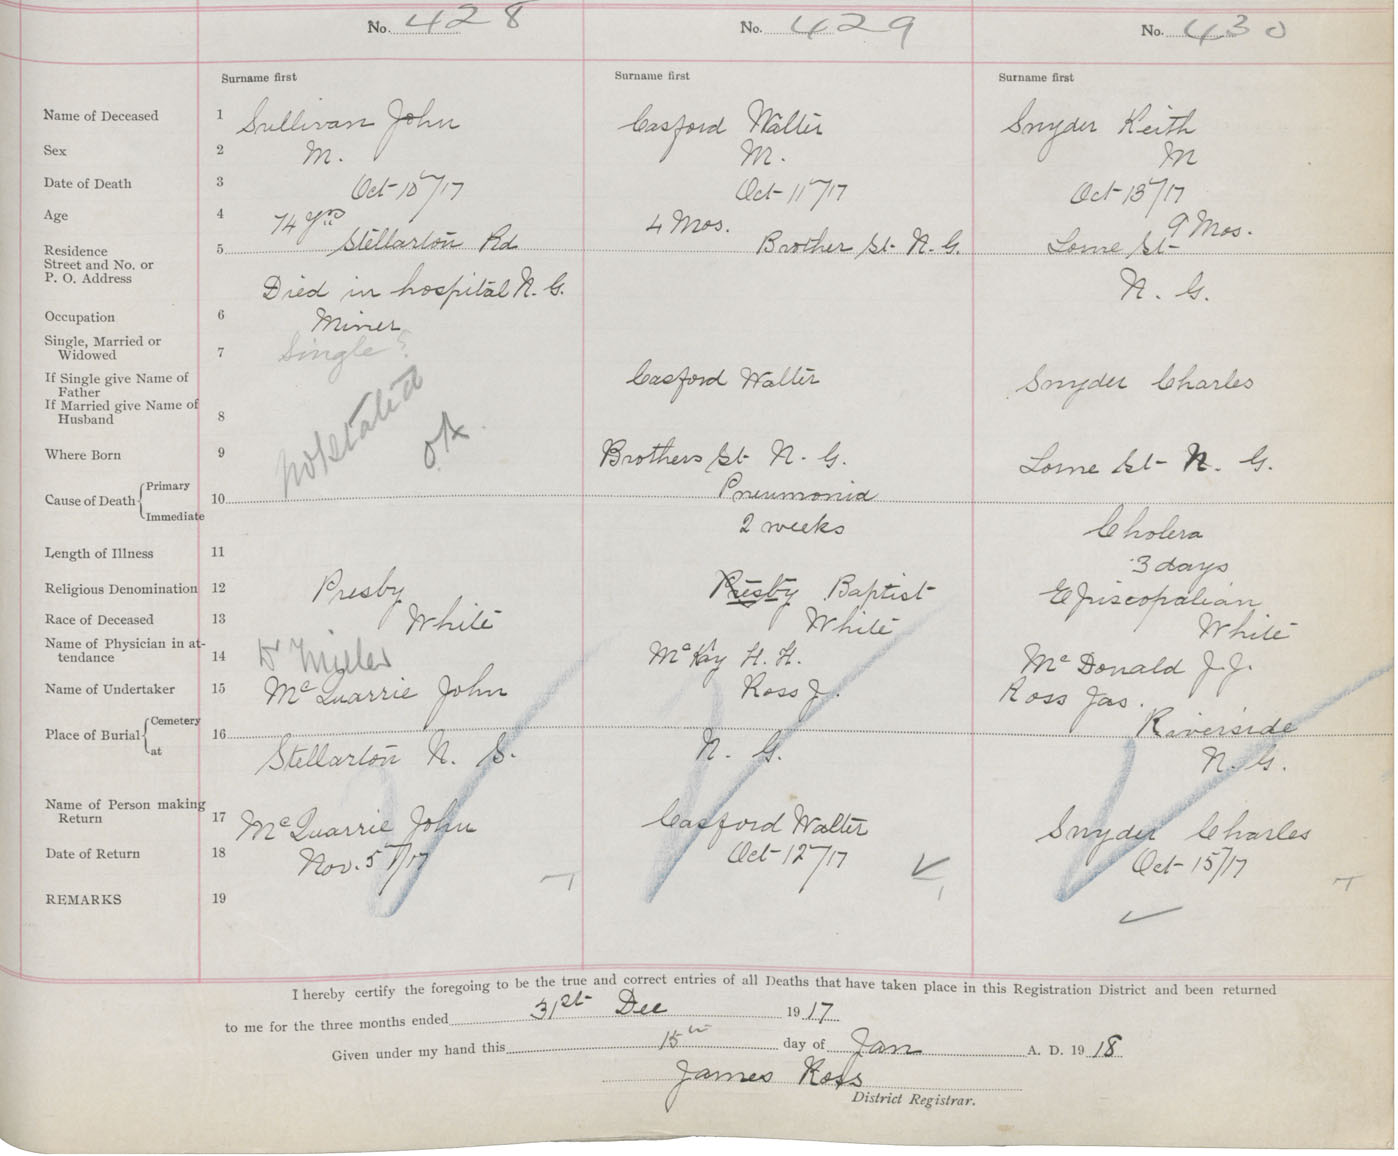 No. 428 No. 429 No. 430
Surname first Surname first Surname first
Name of Deceased 1 Sullivan John Casford Walter Snyder Keith
Sex 2 M. M. M
Date of Death 3 Oct 10th/17 Oct 11th/17 Oct 13th/17
Age 4 74 yrs 4 Mos. 9 Mos.
Residence 5 Stellarton Rd Brother St. N. G. Lorne St
Street and No. or
P. O. Address Died in hospital N. G. N. G.
Occupation 6 Miner
Single, Married or
Widowed 7 Single?
If Single give Name of
Father Casford Walter Snyder Charles
If Married give Name of
Husband 8 not stated ok
Where Born 9 Brothers St N. G. Lorne St N. G.
Cause of Death Primary 10 Pneumonia
Immediate 2 weeks Cholera
Length of Illness 11 3 days
Religious Denomination 12 Presby Presby Baptist Episcopalian
Race of Deceased 13 White White White
Name of Physician in at-
tendance 14 Dr Miller McKay H. H. McDonald J. J.
Name of Undertaker 15 McQuarrie John Ross J. Ross Jas.
Place of Burial Cemetery 16 Riverside
at Stellarton N. S. N. G. N. G.
Name of Person making
Return 17 McQuarrie John Casford Walter Snyder Charles
Date of Return 18 Nov. 5th/17 Oct 12th/17 Oct 15th/17
REMARKS 19
I hereby certify the foregoing to be the true and correct entries of all Deaths that have taken place in this Registration District and been returned
to me for the three months ended 31st Dec 1917
Given under my hand this 15th day of Jan A. D. 1918
James Ross
District Registrar.